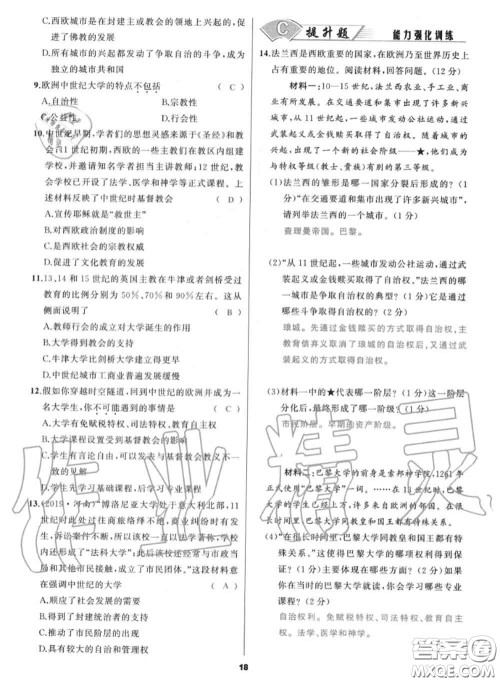 C.西欧城市是在封建主或教会的领地上兴起的,促进了佛教的发展
D.所有城市的兴起都发动了争取自治的斗争,成为独立的城市共和国
9.欧洲中世纪大学的特点不包括 ( C )
A.自治性 B.宗教性
C.公益性 D.行会性
10.中世纪早期,学者们的思想灵感来源于《圣经》和教会,11世纪初期,西欧的一些主教们在教区内组建学校,并邀请知名学者担当主讲教师;12世纪,教会学校已开设了法学、医学和神学等正式课程。上述材料反映了中世纪时基督教会 ( D )
A.宣传耶稣就是“救世主”
B.对西欧政治制度的影响
C.是西欧社会的宗教权威
D.促进了文化教育的发展
11.13、14和15世纪的英国主教在牛津或者剑桥受过教育的比例分别为50%、70%和90%左右。这从侧面说明了 ( B )
A.教师行会的成立对大学诞生的作用
B.大学取得了很大的成功
C.牛津大学比剑桥大学建立得更早
D.中世纪城市工商业普遍发展缓慢
12.假如你穿越时空隧道,回到中世纪的欧洲并成为一名大学生,你不可能遇到的事情是
A.大学有免赋税特权、司法特权、教育自主权
B.大学课程设置受到基督教会的影响
C.学生言论自由,可以发表与基督教会教义不一致的见解
D.学生先学习基础课程,后学习专业课程
13.(2019·河南)“博洛尼亚大学处于意大利北部,11世纪时此处往来商旅络绎不绝,商业纠纷时有发生,诉讼案件不断,所以该校一直以巴黎大学著称,学校内还形成了“法科大学”;其后该校还经常与市政当局合作,成立了市民团体。”这段材料意在强调中世纪的大学 ( A )
A.顺应了社会发展的需要
B.得到了封建统治者的支持
C.推动了市民阶层的出现
D.具有较大的自治和管理权
C 提升题 能力强化训练
14.法兰西是西欧重要的国家,在欧洲乃至世界历史上占有重要的地位。阅读材料,回答问题。(12分)
材料一:10—15世纪,法兰西农业、手工业、商业有所发展。在交通要道和集市出现了许多新兴城市,从11世纪起,一些城市发动公社运动,通过武装起义或金钱赎买取得了自治权。随着城市的兴起,出现了一个新的社会阶级——★,他们成为与特权等级(教士、贵族)有别的第三等级。
(1)法兰西的雏形是哪一国家分裂后形成的?(1分)“在交通要道和集市出现了许多新兴城市”,请列举法兰西的一个城市。(1分)
查理曼帝国。巴黎。
(2)“从11世纪起,一些城市发动公社运动,通过武装起义或金钱赎买取得了自治权。”法兰西的哪一城市是争取自治权的典型?(1分)它是通过哪些方式取得自治权的?(2分)
琅城。先通过金钱赎买的方式取得自治权,主教背信弃义取消了琅城的自治权后,又通过武装起义的方式取得自治权。
(3)材料一中的★代表哪一阶层?(1分)这一阶层分化后,最终形成了什么阶级?(1分)
市民阶层。早期的资产阶级。
材料二:巴黎大学的前身是索邦神学院,1261年正式使用“巴黎大学”一词。……在11世纪时,巴黎大学的学生已经上万,许多学生来自欧洲其他国家。在很长的时间里,巴黎大学同教皇和国王都有特殊关系。
(4)“在很长的时间里,巴黎大学同教皇和国王都有特殊关系。”这使得巴黎大学的哪项权利得到提高?(1分)具体表现在哪些方面?(3分)如果你是当时的巴黎大学就读,你会学习哪些专业课程?(2分)
自治权利。免赋税特权、司法特权、教育自主权。法学、医学和神学。
18
作业精灵